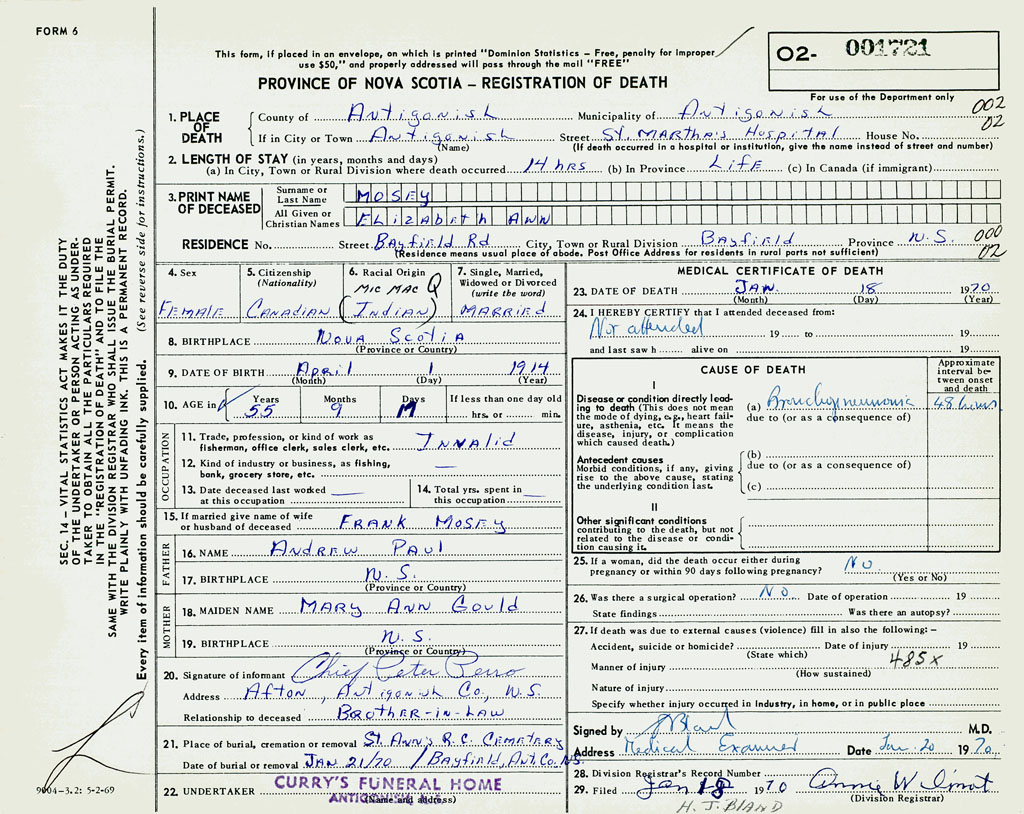 FORM 6
This form, if placed in an envelope, on which is printed "Dominion Statistics – Free, penalty for improper
use $50," and properly addressed will pass through the mail "FREE"
PROVINCE OF NOVA SCOTIA – REGISTRATION OF DEATH
O2- 001721
For use of the Department only
002
02
1. PLACE OF DEATH
County of Antigonish Municipality of Antigonish
If in City or Town Antigonish Street St. Martha's Hospital House No.
(Name) (If death occurred in a hospital or institution, give the name instead of street and number)
2. LENGTH OF STAY (in years, months and days)
(a) In City, Town or Rural Division where death occurred 14 hrs (b) In Province Life (c) In Canada (if immigrant)
3. PRINT NAME OF DECEASED
Surname or Last Name MOSEY
All Given or Christian Names ELIZABETH ANN
RESIDENCE No. Street Bayfield Rd City, Town or Rural Division Bayfield Province N.S.
000
02
(Residence means usual place of abode. Post Office Address for residents in rural parts not sufficient)
4. Sex
FEMALE
5. Citizenship
(Nationality)
CANADIAN
6. Racial Origin
MIC MAC
(INDIAN)
7. Single, Married, Widowed or Divorced
(write the word)
MARRIED
8. BIRTHPLACE Nova Scotia
(Province or Country)
9. DATE OF BIRTH April 1 1914
(Month) (Day) (Year)
10. AGE in
Years 55
Months 9
Days
If less than one day old
hrs. or min.
OCCUPATION
11. Trade, profession, or kind of work as
fisherman, office clerk, sales clerk, etc. Invalid
12. Kind of industry or business, as fishing,
bank, grocery store, etc. —
13. Date deceased last worked
at this occupation
14. Total yrs. spent in
this occupation
15. If married give name of wife
or husband of deceased FRANK MOSEY
FATHER
16. NAME ANDREW PAUL
17. BIRTHPLACE N.S.
(Province or Country)
MOTHER
18. MAIDEN NAME MARY ANN Gould
19. BIRTHPLACE N.S.
(Province or Country)
20. Signature of informant Chief Peter Perro
Address Afton, Antigonish Co., N.S.
Relationship to deceased BROTHER-IN-LAW
21. Place of burial, cremation or removal St. Ann's R.C. CEMETERY
Date of burial or removal JAN 21/70 / Bayfield, Ant. Co. NS.
22. UNDERTAKER CURRY'S FUNERAL HOME
ANTIGONISH
(Name and address)
MEDICAL CERTIFICATE OF DEATH
23. DATE OF DEATH JAN. 18 1970
(Month) (Day) (Year)
24. I HEREBY CERTIFY that I attended deceased from:
Not attended 19 to 19
and last saw h alive on 19
CAUSE OF DEATH
Approximate interval between onset and death
I
Disease or condition directly leading to death (This does not mean the mode of dying, e.g., heart failure, asthenia, etc. It means the disease, injury, or complication which caused death.)
(a) Bronchopneumonia 48 hours
due to (or as a consequence of)
Antecedent causes
Morbid conditions, if any, giving rise to the above cause, stating the underlying condition last.
(b)
due to (or as a consequence of)
(c)
II
Other significant conditions
contributing to the death, but not related to the disease or condition causing it.
25. If a woman, did the death occur either during
pregnancy or within 90 days following pregnancy? No
(Yes or No)
26. Was there a surgical operation? No Date of operation 19
State findings Was there an autopsy?
27. If death was due to external causes (violence) fill in also the following: –
Accident, suicide or homicide? Date of injury 19
(State which) 485X
Manner of injury
(How sustained)
Nature of injury
Specify whether injury occurred in industry, in home, or in public place
Signed by J Bland M.D.
Address Medical Examiner Date Jan. 20 1970
28. Division Registrar's Record Number
29. Filed Jan 18 1970 Annie Wilmot
(Division Registrar)
H. J. BLAND
SEC. 14 – VITAL STATISTICS ACT MAKES IT THE DUTY
OF THE UNDERTAKER OR PERSON ACTING AS UNDER-
TAKER TO OBTAIN ALL THE PARTICULARS REQUIRED
IN THE "REGISTRATION OF DEATH" AND TO FILE THE
SAME WITH THE DIVISION REGISTRAR WHO SHALL ISSUE THE BURIAL PERMIT.
WRITE PLAINLY WITH UNFADING INK. THIS IS A PERMANENT RECORD.
Every item of information should be carefully supplied. (See reverse side for instructions.)
9004-3.2: 5-2-69